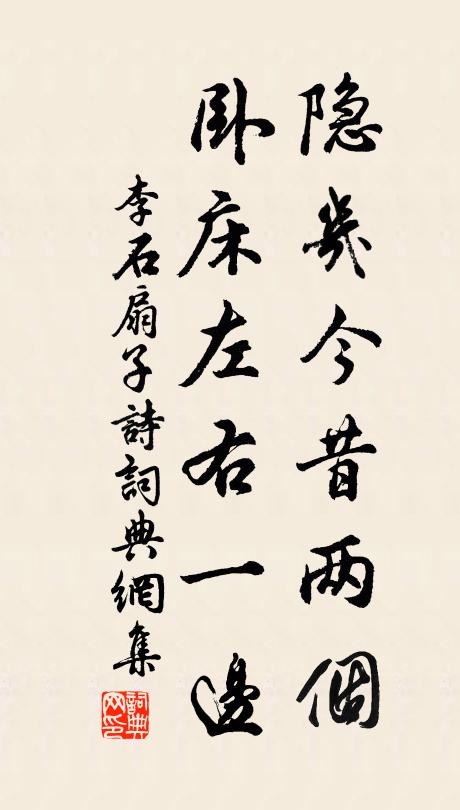 隐幾今昔两個
卧床左右一邊
李石扇子詩詞典網集
詞典
网印